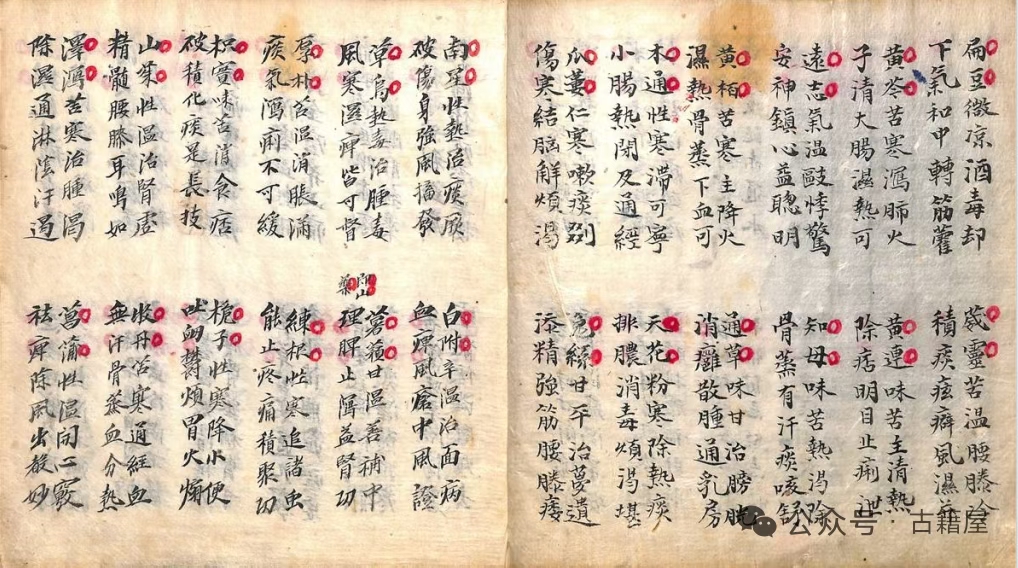 扁豆微凉酒毒却
下氣和中轉筋藿
黄芩苦寒瀉肺火
子清大腸濕熱可
遠志氣温敺悸驚
安神鎮心益聰明
黄栢苦寒主降火
濕熱骨蒸下血可
木通性寒滯可寧
小腸熱閉及通經
瓜蔞仁寒嗽痰
傷寒結胸解煩渴
葳靈苦温腰膝冷
積痰痃癖風濕
黄連味苦主清熱
除痞明目止痢泄
知母味苦熱渴除
骨蒸有汗痰咳舒
通草味甘治膀胱
消癰散腫通乳房
天花粉寒除熱痰
排膿消毒煩渴堪
兔絲甘平治夢遺
添精強筋腰膝痿
南星性熱治痰厥
破傷身強風搐發
草烏熱毒治腫毒
風寒濕痹皆可督
厚朴苦温消脹滿
痰氣瀉痢不可緩
枳實味苦消食痞
破積化痰是長技
山茱性温治腎虚
精髓腰膝耳鳴如
澤瀉苦寒治腫渴
除濕通淋陰汗遏
白附辛温治面病
血痹風瘡中風證
即山藥
薯蕷甘温善補中
理脾止瀉益腎功
練根性寒追諸虫
能止疼痛積聚功
梔子性寒降小便
吐衄欝煩胃火煽
牡丹苦寒通經血
無汗骨蒸血分熱
菖蒲性温開心竅
祛痹除風出聲妙
公众号 古籍屋